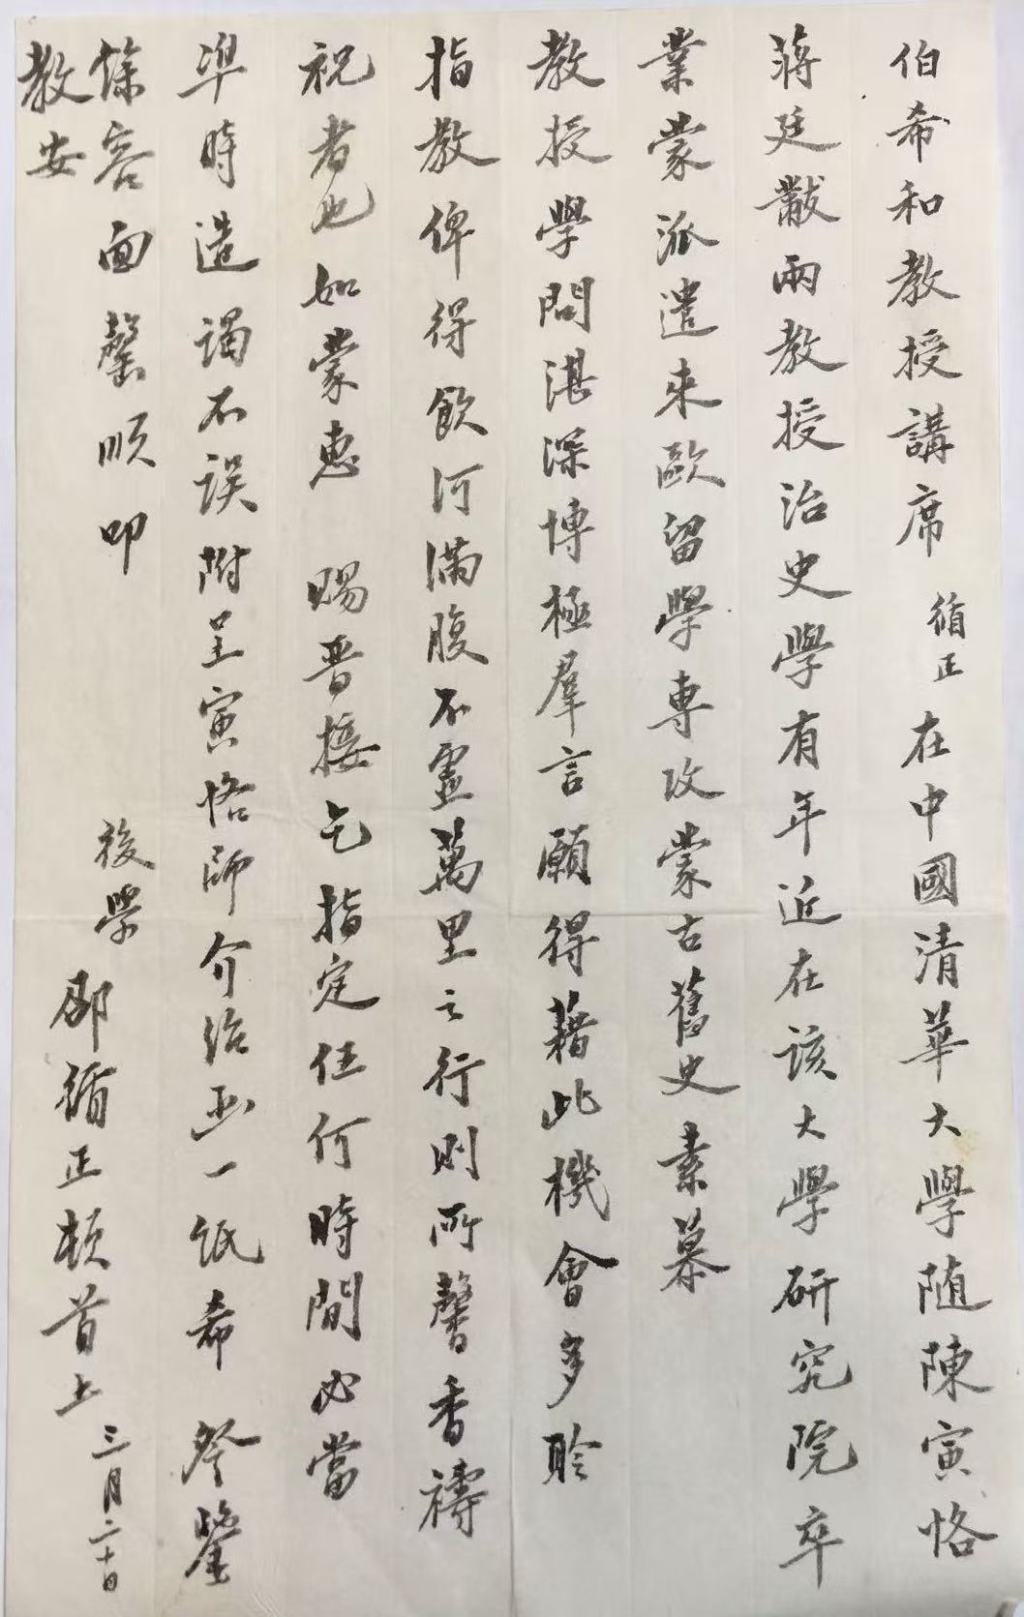 伯希和教授講席 循正 在中國清華大學隨陳寅恪
蔣廷黻兩教授治史學有年近在該大學研究院卒
業蒙派遣來歐留學專攻蒙古舊史素慕
教授學問湛深博極羣言願得藉此機會多聆
指教俾得飲河滿腹不虛萬里之行則所馨香禱
祝者也如蒙惠 賜晉接乞指定任何時間必當
準時造謁不誤附呈寅恪師介紹函一紙希 詧鑒
餘容面罄順叩
教安
後學 邵循正頓首上 三月二十日